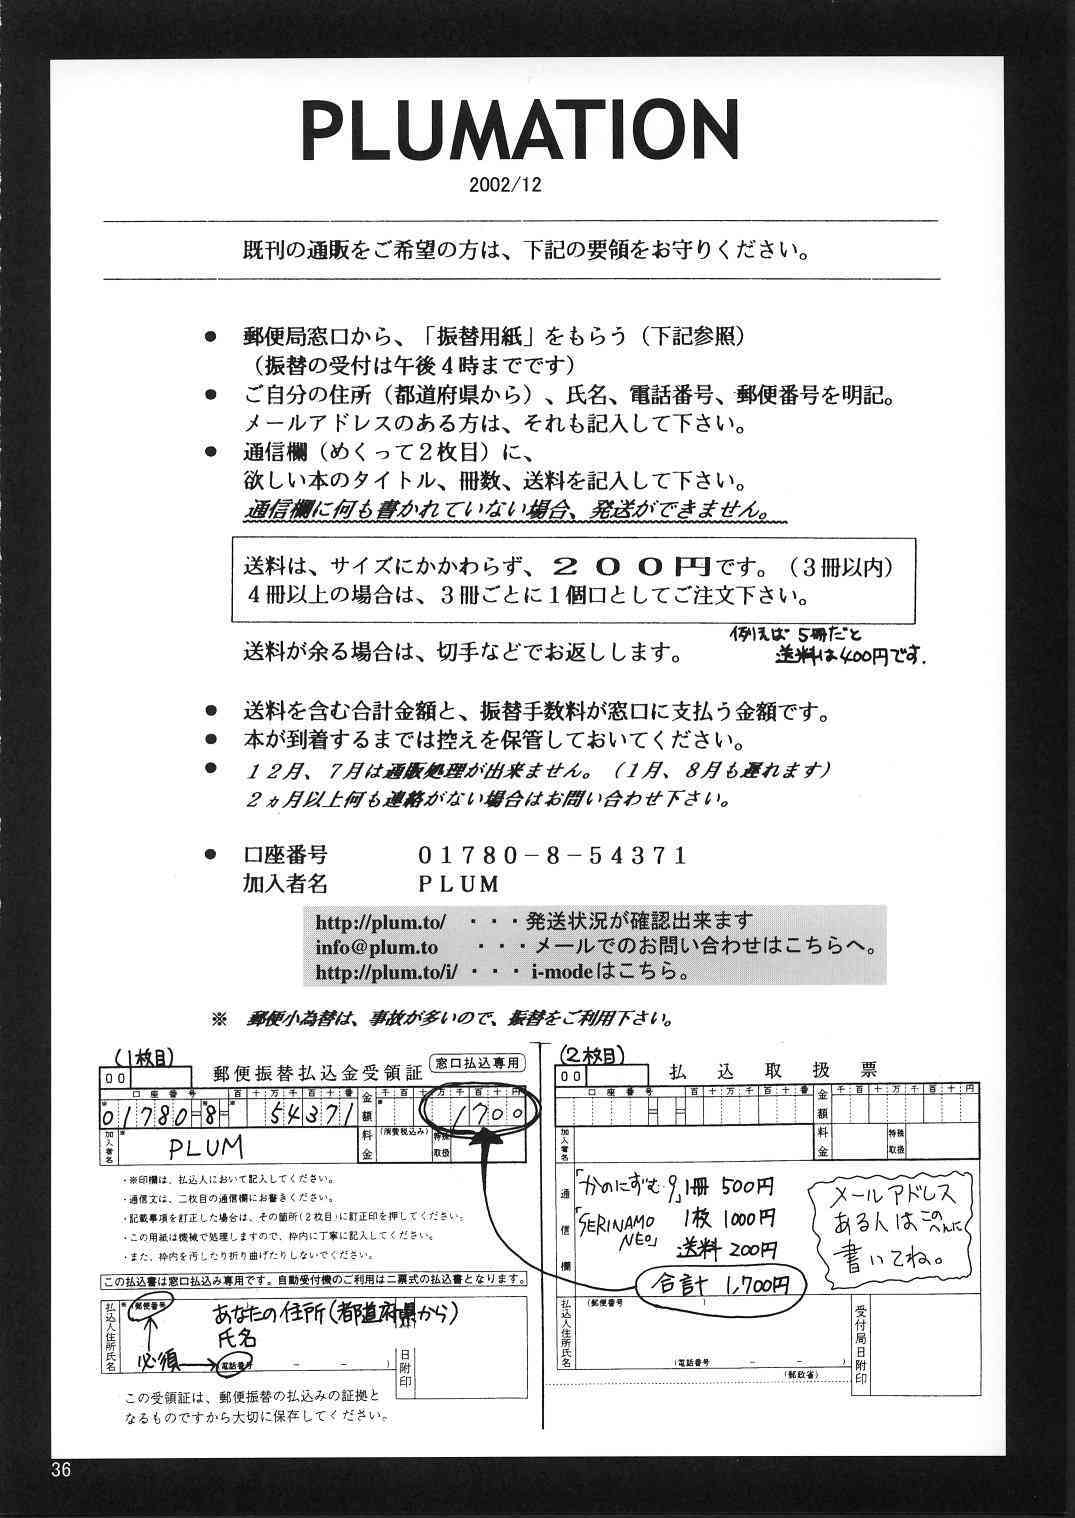 PLUMATION
2002/12
既刊の通販をご希望の方は、下記の要領をお守りください。
● 郵便局窓口から、「振替用紙」をもらう（下記参照）
（振替の受付は午後４時までです）
● ご自分の住所（都道府県から）、氏名、電話番号、郵便番号を明記。
メールアドレスのある方は、それも記入して下さい。
● 通信欄（めくって２枚目）に、
欲しい本のタイトル、冊数、送料を記入して下さい。
通信欄に何も書かれていない場合、発送ができません。
送料は、サイズにかかわらず、２００円です。（３冊以内）
４冊以上の場合は、３冊ごとに１個口としてご注文下さい。
例えば 5冊だと
送料は400円です.
送料が余る場合は、切手などでお返しします。
● 送料を含む合計金額と、振替手数料が窓口に支払う金額です。
● 本が到着するまでは控えを保管しておいてください。
● １２月、７月は通販処理が出来ません。（１月、８月も遅れます）
２ヵ月以上何も連絡がない場合はお問い合わせ下さい。
● 口座番号 ０１７８０－８－５４３７１
加入者名 ＰＬＵＭ
http://plum.to/ ・・・発送状況が確認出来ます
info@plum.to ・・・メールでのお問い合わせはこちらへ。
http://plum.to/i/ ・・・ i-modeはこちら。
※ 郵便小為替は、事故が多いので、振替をご利用下さい。
(1枚目)
00
郵便振替払込金受領証
窓口払込専用
口座番号 百十万千百十番
01780-8-54371
金額
千百十万千百十円
1700
加入者名
PLUM
料金
(消費税込み)
特殊取扱
・※印欄は、払込人において記入してください。
・通信文は、二枚目の通信欄にお書きください。
・記載事項を訂正した場合は、その箇所(２枚目)に訂正印を押してください。
・この用紙は機械で処理しますので、枠内に丁寧に記入してください。
・また、枠内を汚したり折り曲げたりしないでください。
この払込書は窓口払込み専用です。自動受付機のご利用は二票式の払込書となります。
払込人住所氏名
郵便番号
あなたの住所(都道府県から)
氏名
必須
(電話番号 － － )
日附印
この受領証は、郵便振替の払込みの証拠と
なるものですから大切に保存してください。
(2枚目)
00
払込取扱票
口座番号 百十万千百十番
金額
千百十万千百十円
加入者名
料金
特殊取扱
通信欄
「かのにずむ9」1冊 500円
「SERINAMO NEO」 1枚 1000円
送料 200円
合計 1,700円
メールアドレス
ある人はこのへんに
書いてね。
払込人住所氏名
(郵便番号 )
(電話番号 － － )
(郵政省)
受付局日附印
36